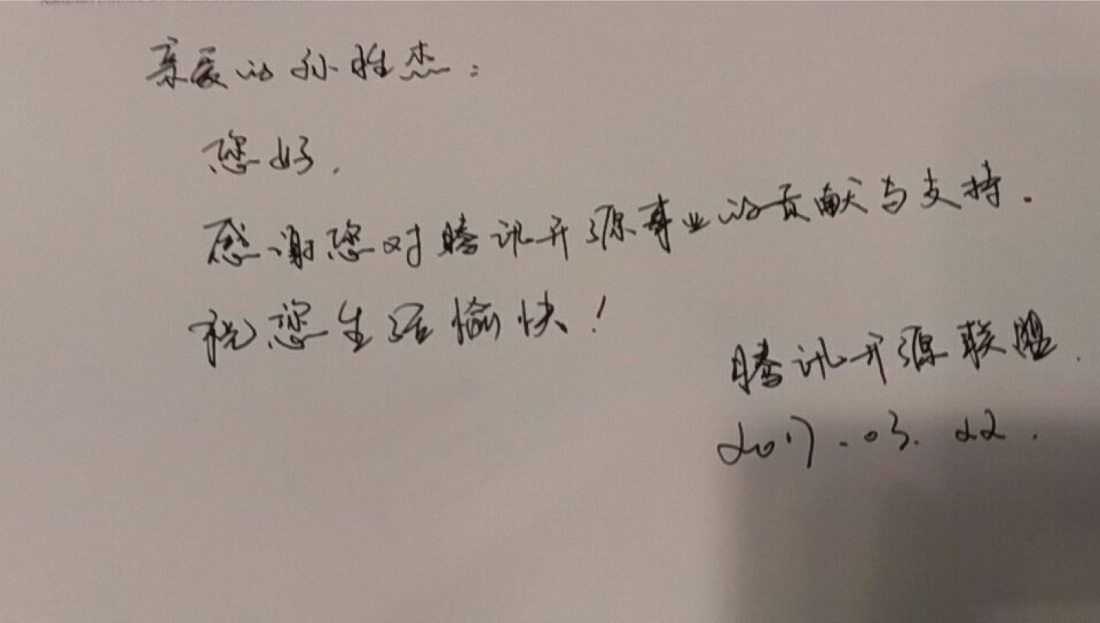 亲爱的孙胜杰：
您好.
感谢您对腾讯开源事业的贡献与支持.
祝您生活愉快！
腾讯开源联盟.
2017.03.22.